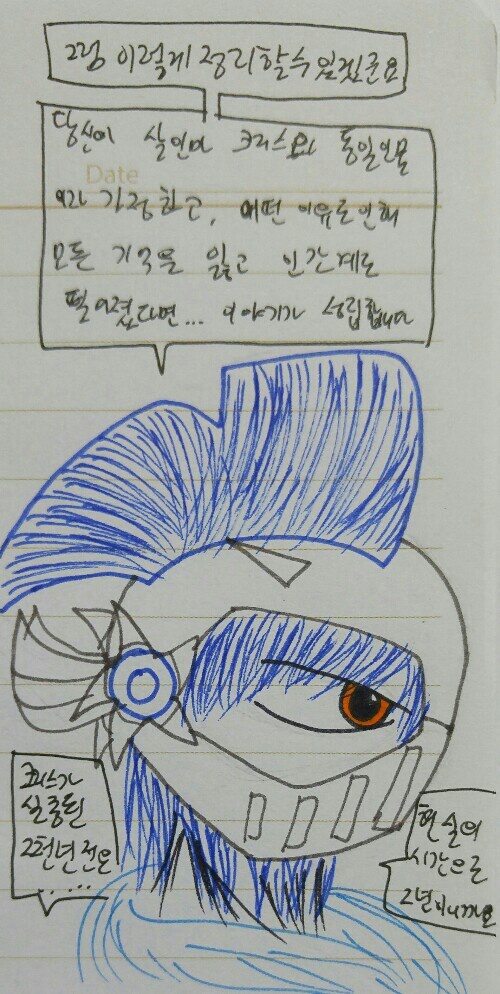 그럼 이렇게 정리할수 있겠군요
당신이 살인마 크리스와 동일인물
Date
이라 가정하고, 어떤 이유로인해
모든 기억을 잃고 인간계로
떨어졌다면... 이야기가 성립합니다
크리스가
실종된
2천년전은
....
현실의
시간으로
2년이니까요